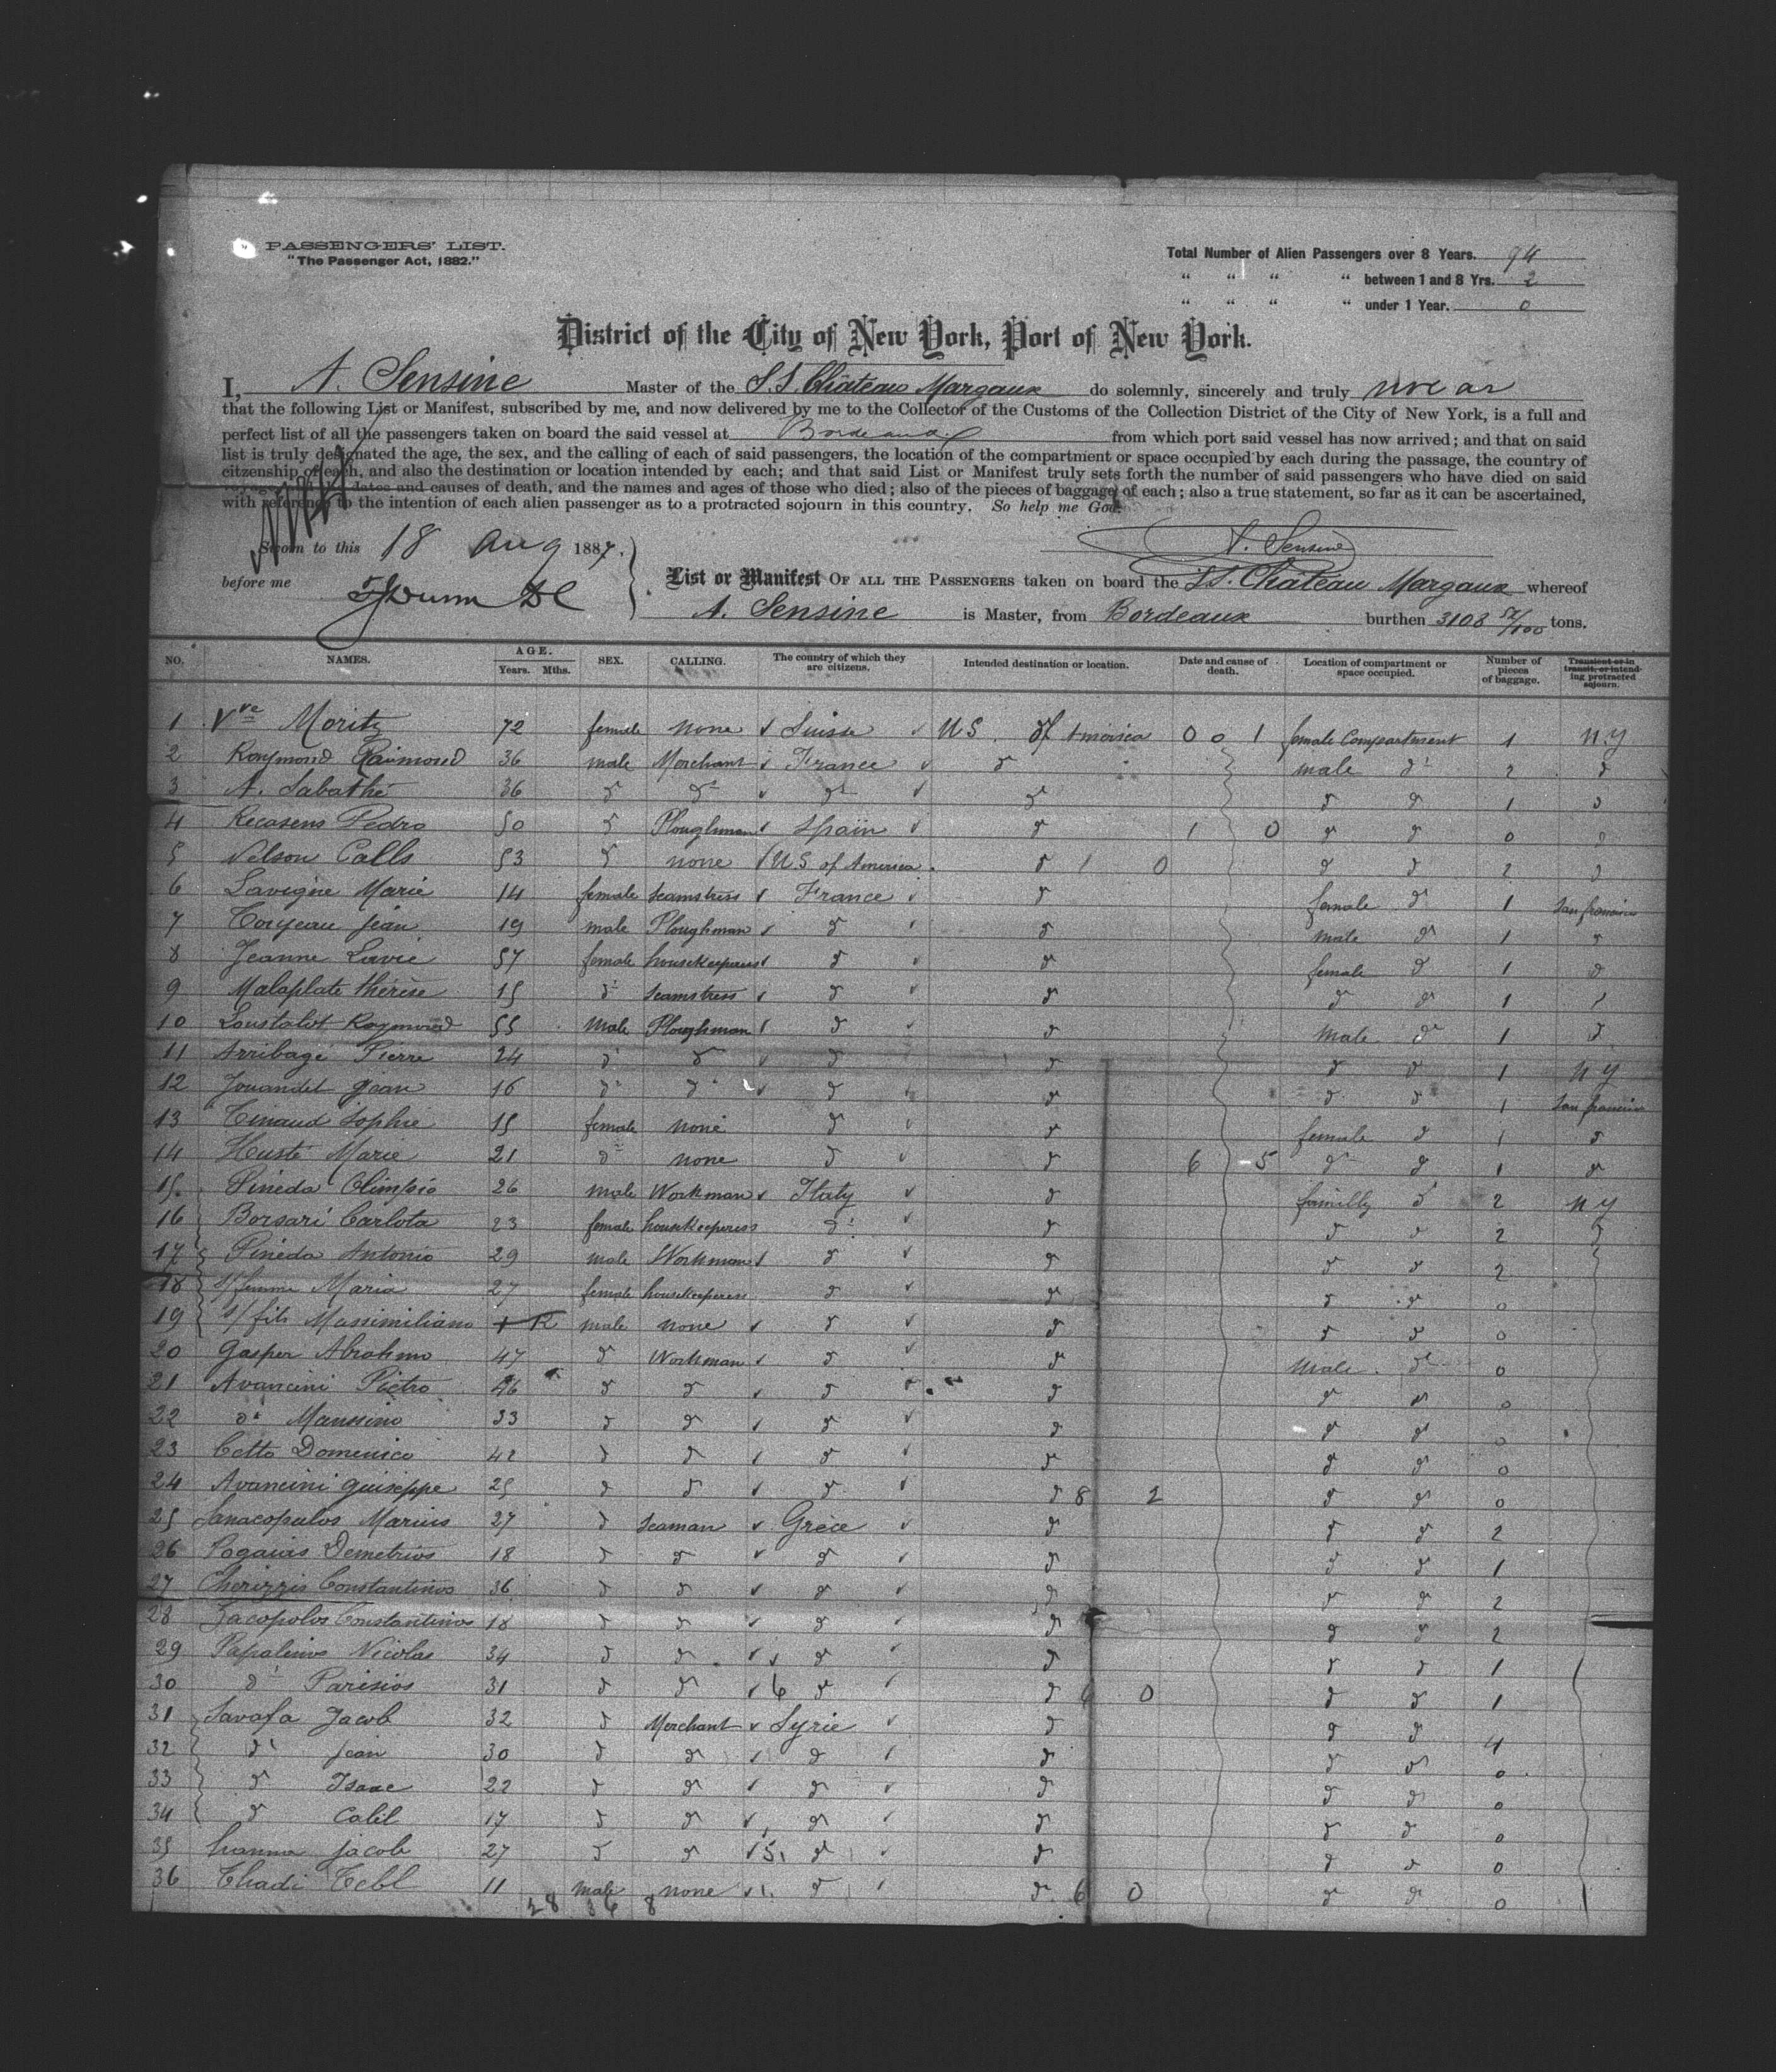 PASSENGERS' LIST.
"The Passenger Act, 1882."
Total Number of Alien Passengers over 8 Years. 94
" " " " between 1 and 8 Yrs. 2
" " " " under 1 Year. 0
District of the City of New York, Port of New York.
I, A. Sensine Master of the S.S. Château Margaux do solemnly, sincerely and truly swear
that the following List or Manifest, subscribed by me, and now delivered by me to the Collector of the Customs of the Collection District of the City of New York, is a full and
perfect list of all the passengers taken on board the said vessel at Bordeaux from which port said vessel has now arrived; and that on said
list is truly designated the age, the sex, and the calling of each of said passengers, the location of the compartment or space occupied by each during the passage, the country of
citzenship of each, and also the destination or location intended by each; and that said List or Manifest truly sets forth the number of said passengers who have died on said
dates and causes of death, and the names and ages of those who died; also of the pieces of baggage of each; also a true statement, so far as it can be ascertained,
with reference to the intention of each alien passenger as to a protracted sojourn in this country. So help me God.
Sworn to this 18 Aug 1887. A. Sensine
before me
List or Manifest OF ALL THE PASSENGERS taken on board the S.S. Château Margaux whereof
A. Sensine is Master, from Bordeaux burthen 3108 52/100 tons.
NO. NAMES. AGE. Years. Mths. SEX. CALLING. The country of which they are citizens. Intended destination or location. Date and cause of death. Location of compartment or space occupied. Number of pieces of baggage. Transient or in transit, or intending protracted sojourn.
1 Vve Moritz 72 female none Suisse U.S. of America 0 0 1 female Compartment 1 N.Y
2 Raymond Raimond 36 male Merchant France d° male d° 2 d°
3 A. Sabathé 36 d° d° d° d° d° d° 1 d°
4 Recasens Pedro 50 d° Ploughman Spain d° 1 0 d° d° 0 d°
5 Nelson Calls 53 d° none U.S of America d° 1 0 d° d° 2 d°
6 Lavigne Marie 14 female seamstress France d° female d° 1 San francisco
7 Touyeau Jean 19 male Ploughman d° d° male d° 1 d°
8 Jeanne Lavie 57 female housekeeperess d° d° female d° 1 d°
9 Malaplate thérèse 15 d° seamstress d° d° d° d° 1
10 Loustalot Raymond 55 Male Ploughman d° d° Male d° 1 d°
11 Arribagé Pierre 24 d° d° d° d° d° d° 1 N Y
12 Jouandet Jean 16 d° d° d° d° d° d° 1 San francisco
13 Tinaud Sophie 15 female none d° d° female d° 1 d°
14 Husté Marie 21 d° none d° d° 6 5 d° d° 1 d°
15 Pineda Climpio 26 male Workman Italy d° familly d° 2 N Y
16 Borsari Carlota 23 female housekeeperess d° d° d° d° 2 d°
17 Pineda Antonio 29 male Workman d° d° d° d° 2
18 s/femme Maria 27 female housekeeperess d° d° d° d° 0
19 s/fils Massimiliano male none d° d° d° d° 0
20 Gasper Abrahmo 47 d° Workman d° d° Male d° 0
21 Avancini Pietro 46 d° d° d° d° d° d° 0
22 d° Manssino 33 d° d° d° d° d° d° 0
23 Cetto Domenico 42 d° d° d° d° d° d° 0
24 Avancini Guiseppe 25 d° d° d° d° 8 2 d° d° 0
25 Sanacopulos Marius 27 d° seaman Grèce d° d° d° 2
26 Pogaiois Demetrios 18 d° d° d° d° d° d° 1
27 Cherizzis Constantinos 36 d° d° d° d° d° d° 2
28 Zacopolos Constantinos 18 d° d° d° d° d° d° 2
29 Papalinos Nicolas 34 d° d° d° d° d° d° 1
30 d° Parisios 31 d° d° 6 d° d° 6 0 d° d° 1
31 Savafa Jacob 32 d° Merchant Syrie d° d° d° 4
32 d° Jean 30 d° d° d° d° d° d° 0
33 d° Isaac 22 d° d° d° d° d° d° 0
34 d° Calil 17 d° d° d° d° d° d° 0
35 hanna Jacob 27 d° d° 5 d° d° d° d° 0
36 Chadi Tebl 11 male none 1 d° d° 6 0 d° d° 0
28 36 8